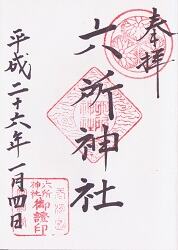 奉拝
六所神社
六所
神社
御證印
平成二十六年一月四日